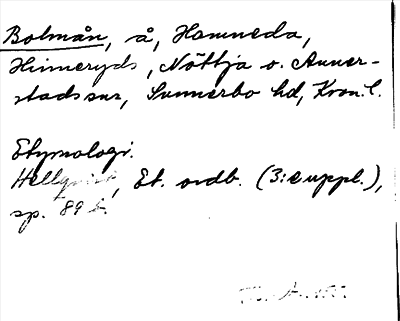 Bolmån, å, Hamneda,
Hinneryds, Nöttja o. Anner-
stads snr, Sunnerbo hd, Kron. l.
Etymologi.
Hellquist, Et. ordb. (3:e uppl.),
sp. 89 b.